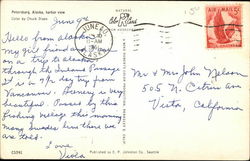 Petersburg, Alaska, harbor view
Color by Chuck Diven
June 9th
Hello from alaska.
my girl friend and I are
on a trip to alaska
through the Inland Passage
it is 9 day trip from
Vancouver. Scenery is very
beautiful. Passes by this
fishing village this morning
many smokes from there we
are told.
Love
Viola
NATURAL
JUNEAU
AM
AIR MAIL
Mr & Mrs John Nelson
505 N. Citrus Ave
Vista, California
C5341
Published by C. P. Johnston Co., Seattle